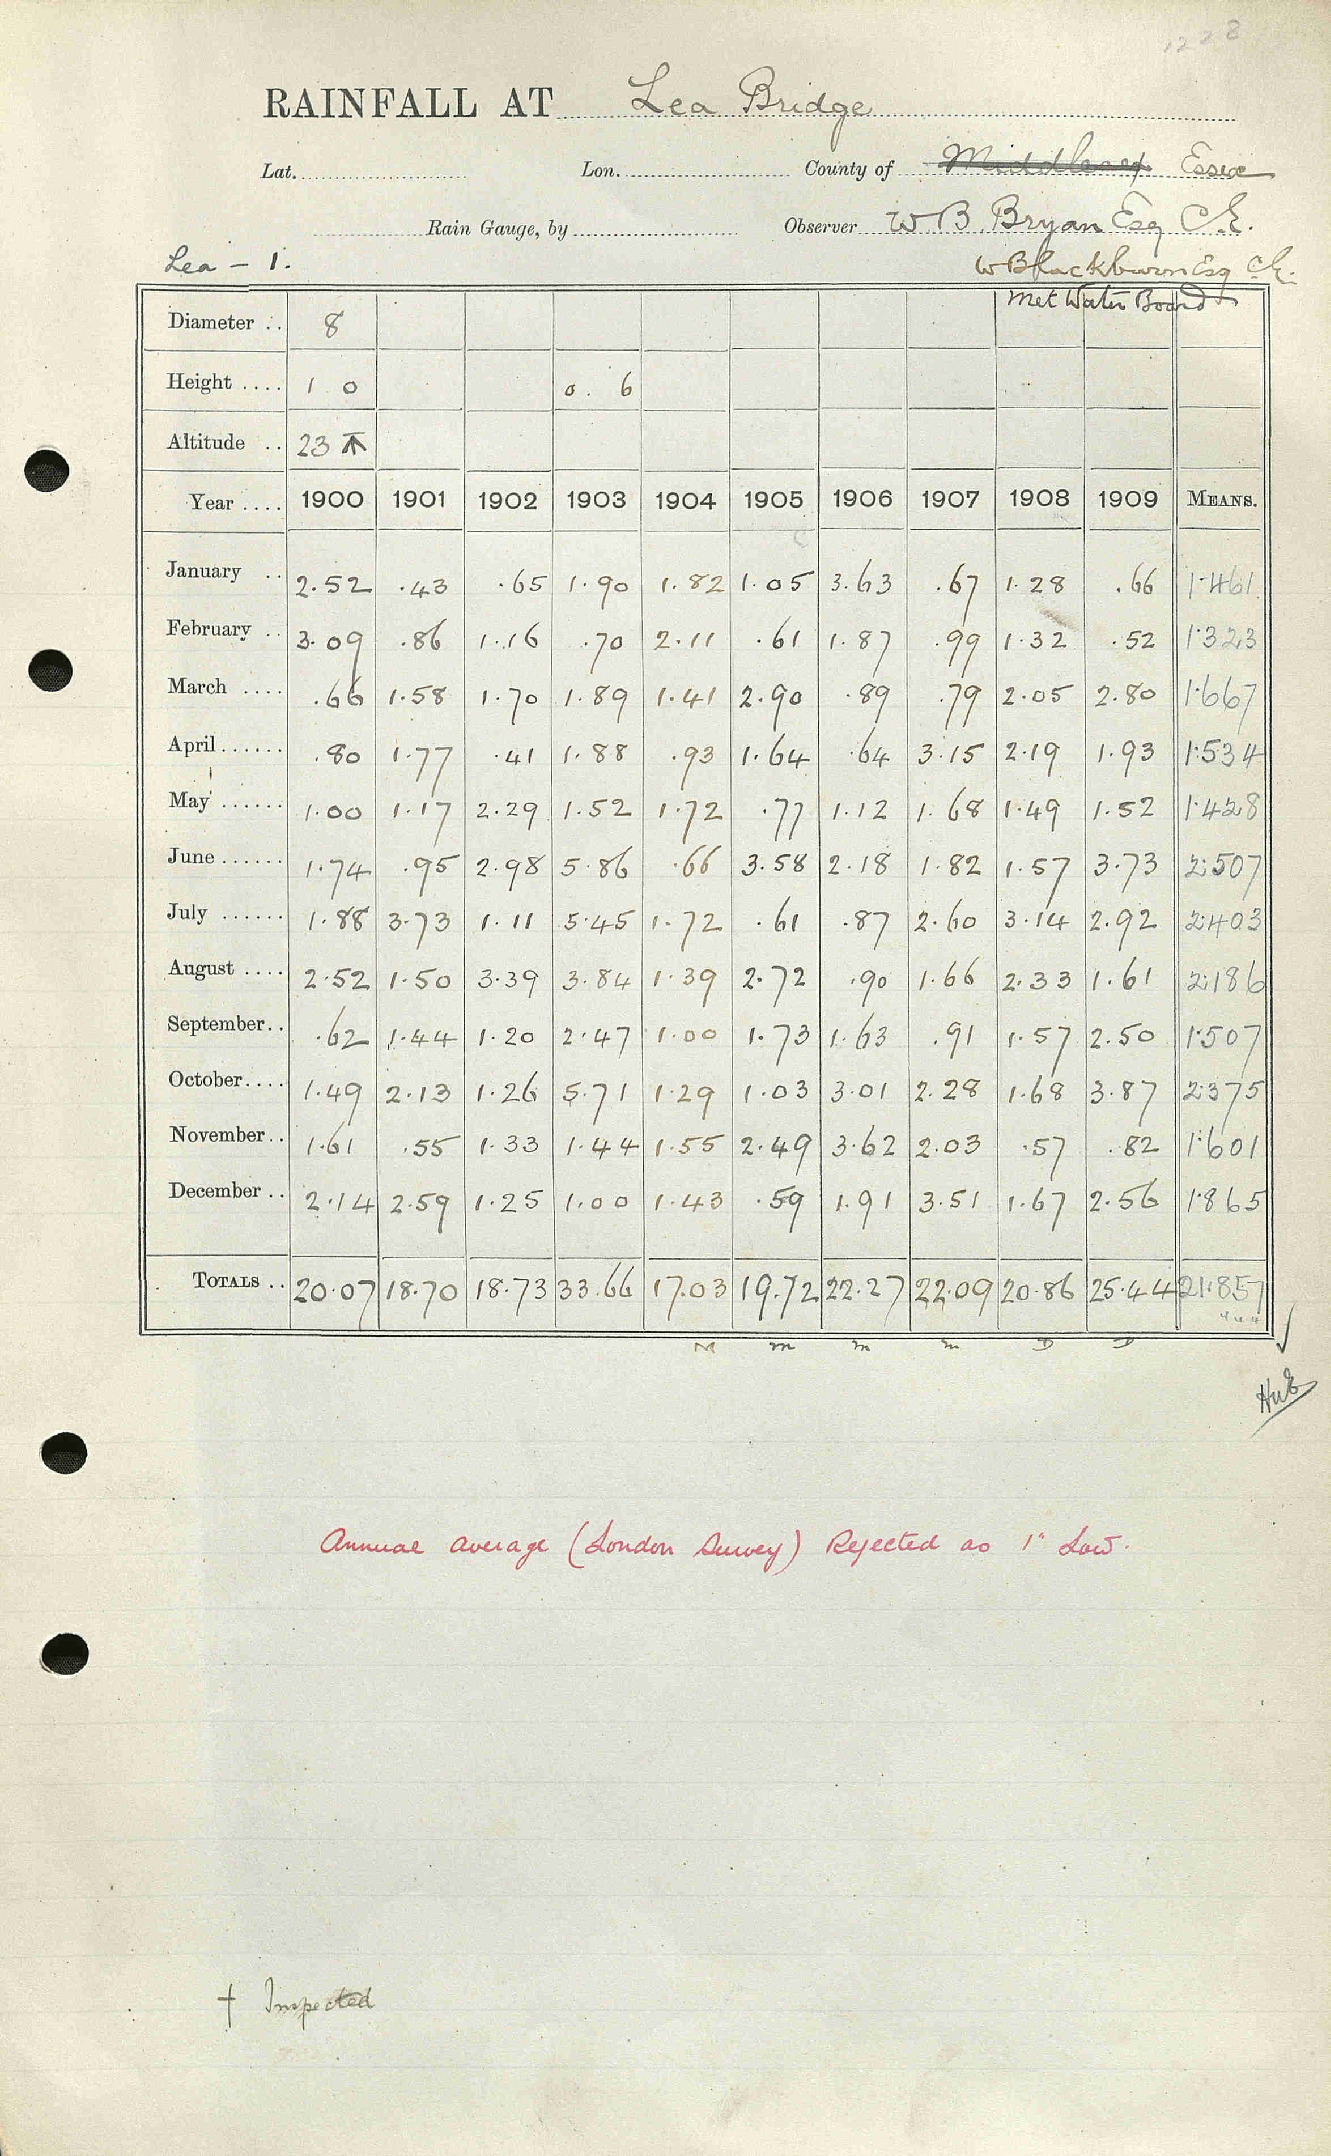 1228
RAINFALL AT Lea Bridge
Lat. Lon. County of Middlesex Essex
Rain Gauge, by Observer W B. Bryan Esq C.E.
Lea - 1. W Blackburn Esq C.E.
Met Water Board
Diameter .. 8
Height .... 1 . 0 0 . 6
Altitude .. 23 ↑
Year .... 1900 1901 1902 1903 1904 1905 1906 1907 1908 1909 MEANS.
January .. 2.52 .43 .65 1.90 1.82 1.05 3.63 .67 1.28 .66 1.461
February .. 3.09 .86 1.16 .70 2.11 .61 1.87 .99 1.32 .52 1.323
March .... .66 1.58 1.70 1.89 1.41 2.90 .89 .79 2.05 2.80 1.667
April...... .80 1.77 .41 1.88 .93 1.64 .64 3.15 2.19 1.93 1.534
May ...... 1.00 1.17 2.29 1.52 1.72 .77 1.12 1.68 1.49 1.52 1.428
June ...... 1.74 .95 2.98 5.86 .66 3.58 2.18 1.82 1.57 3.73 2.507
July ...... 1.88 3.73 1.11 5.45 1.72 .61 .87 2.60 3.14 2.92 2.403
August .... 2.52 1.50 3.39 3.84 1.39 2.72 .90 1.66 2.33 1.61 2.186
September.. .62 1.44 1.20 2.47 1.00 1.73 1.63 .91 1.57 2.50 1.507
October.... 1.49 2.13 1.26 5.71 1.29 1.03 3.01 2.28 1.68 3.87 2.375
November.. 1.61 .55 1.33 1.44 1.55 2.49 3.62 2.03 .57 .82 1.601
December .. 2.14 2.59 1.25 1.00 1.43 .59 1.91 3.51 1.67 2.56 1.865
TOTALS .. 20.07 18.70 18.73 33.66 17.03 19.72 22.27 22.09 20.86 25.44 21.857
M m m m D D
Annual average (London Survey) Rejected as 1" Low.
† Inspected